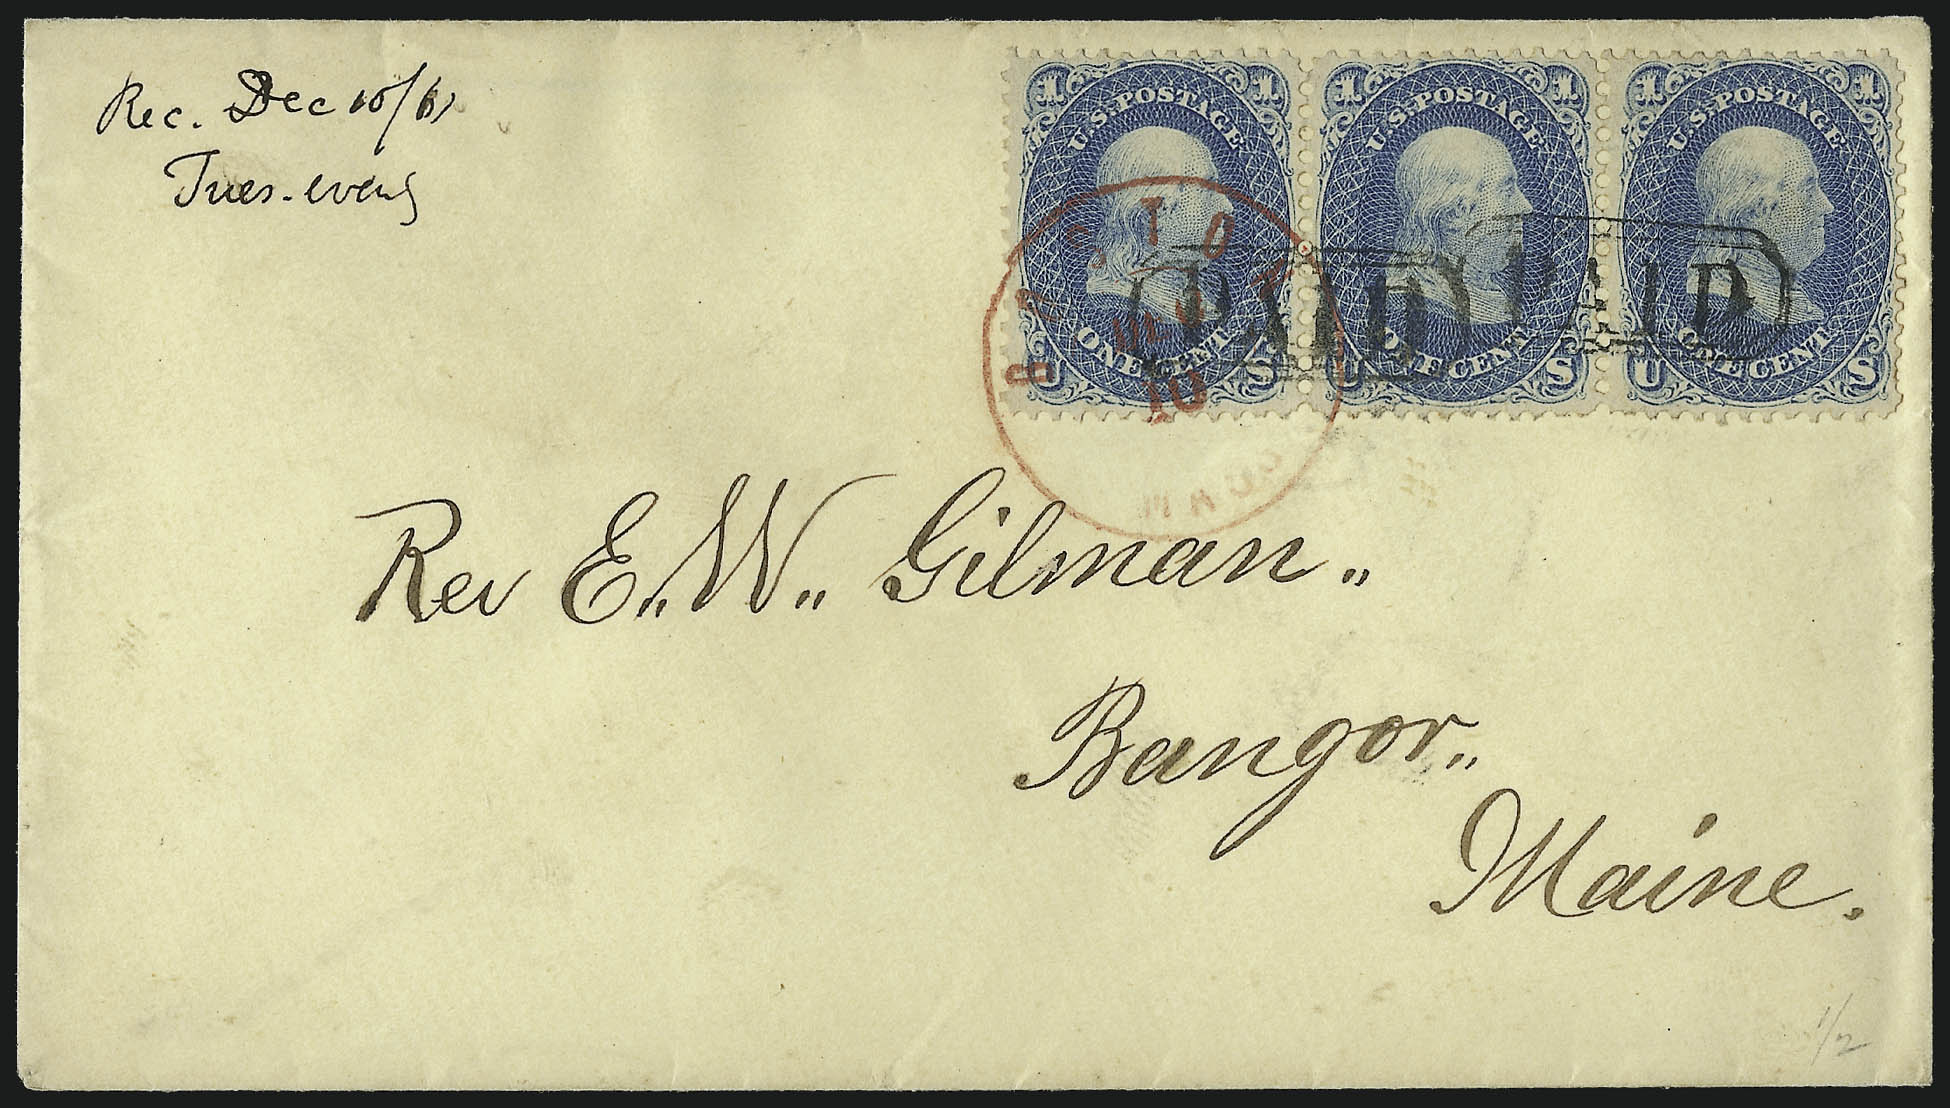 Rec. Dec 10/61
Tues. eveng
1 U.S. POSTAGE 1
ONE CENT
U S
1 U.S. POSTAGE 1
ONE CENT
U S
1 U.S. POSTAGE 1
ONE CENT
U S
BOSTON
10
PAID
PAID
Rev E.. W.. Gilman..
Bangor..
Maine.
1/2